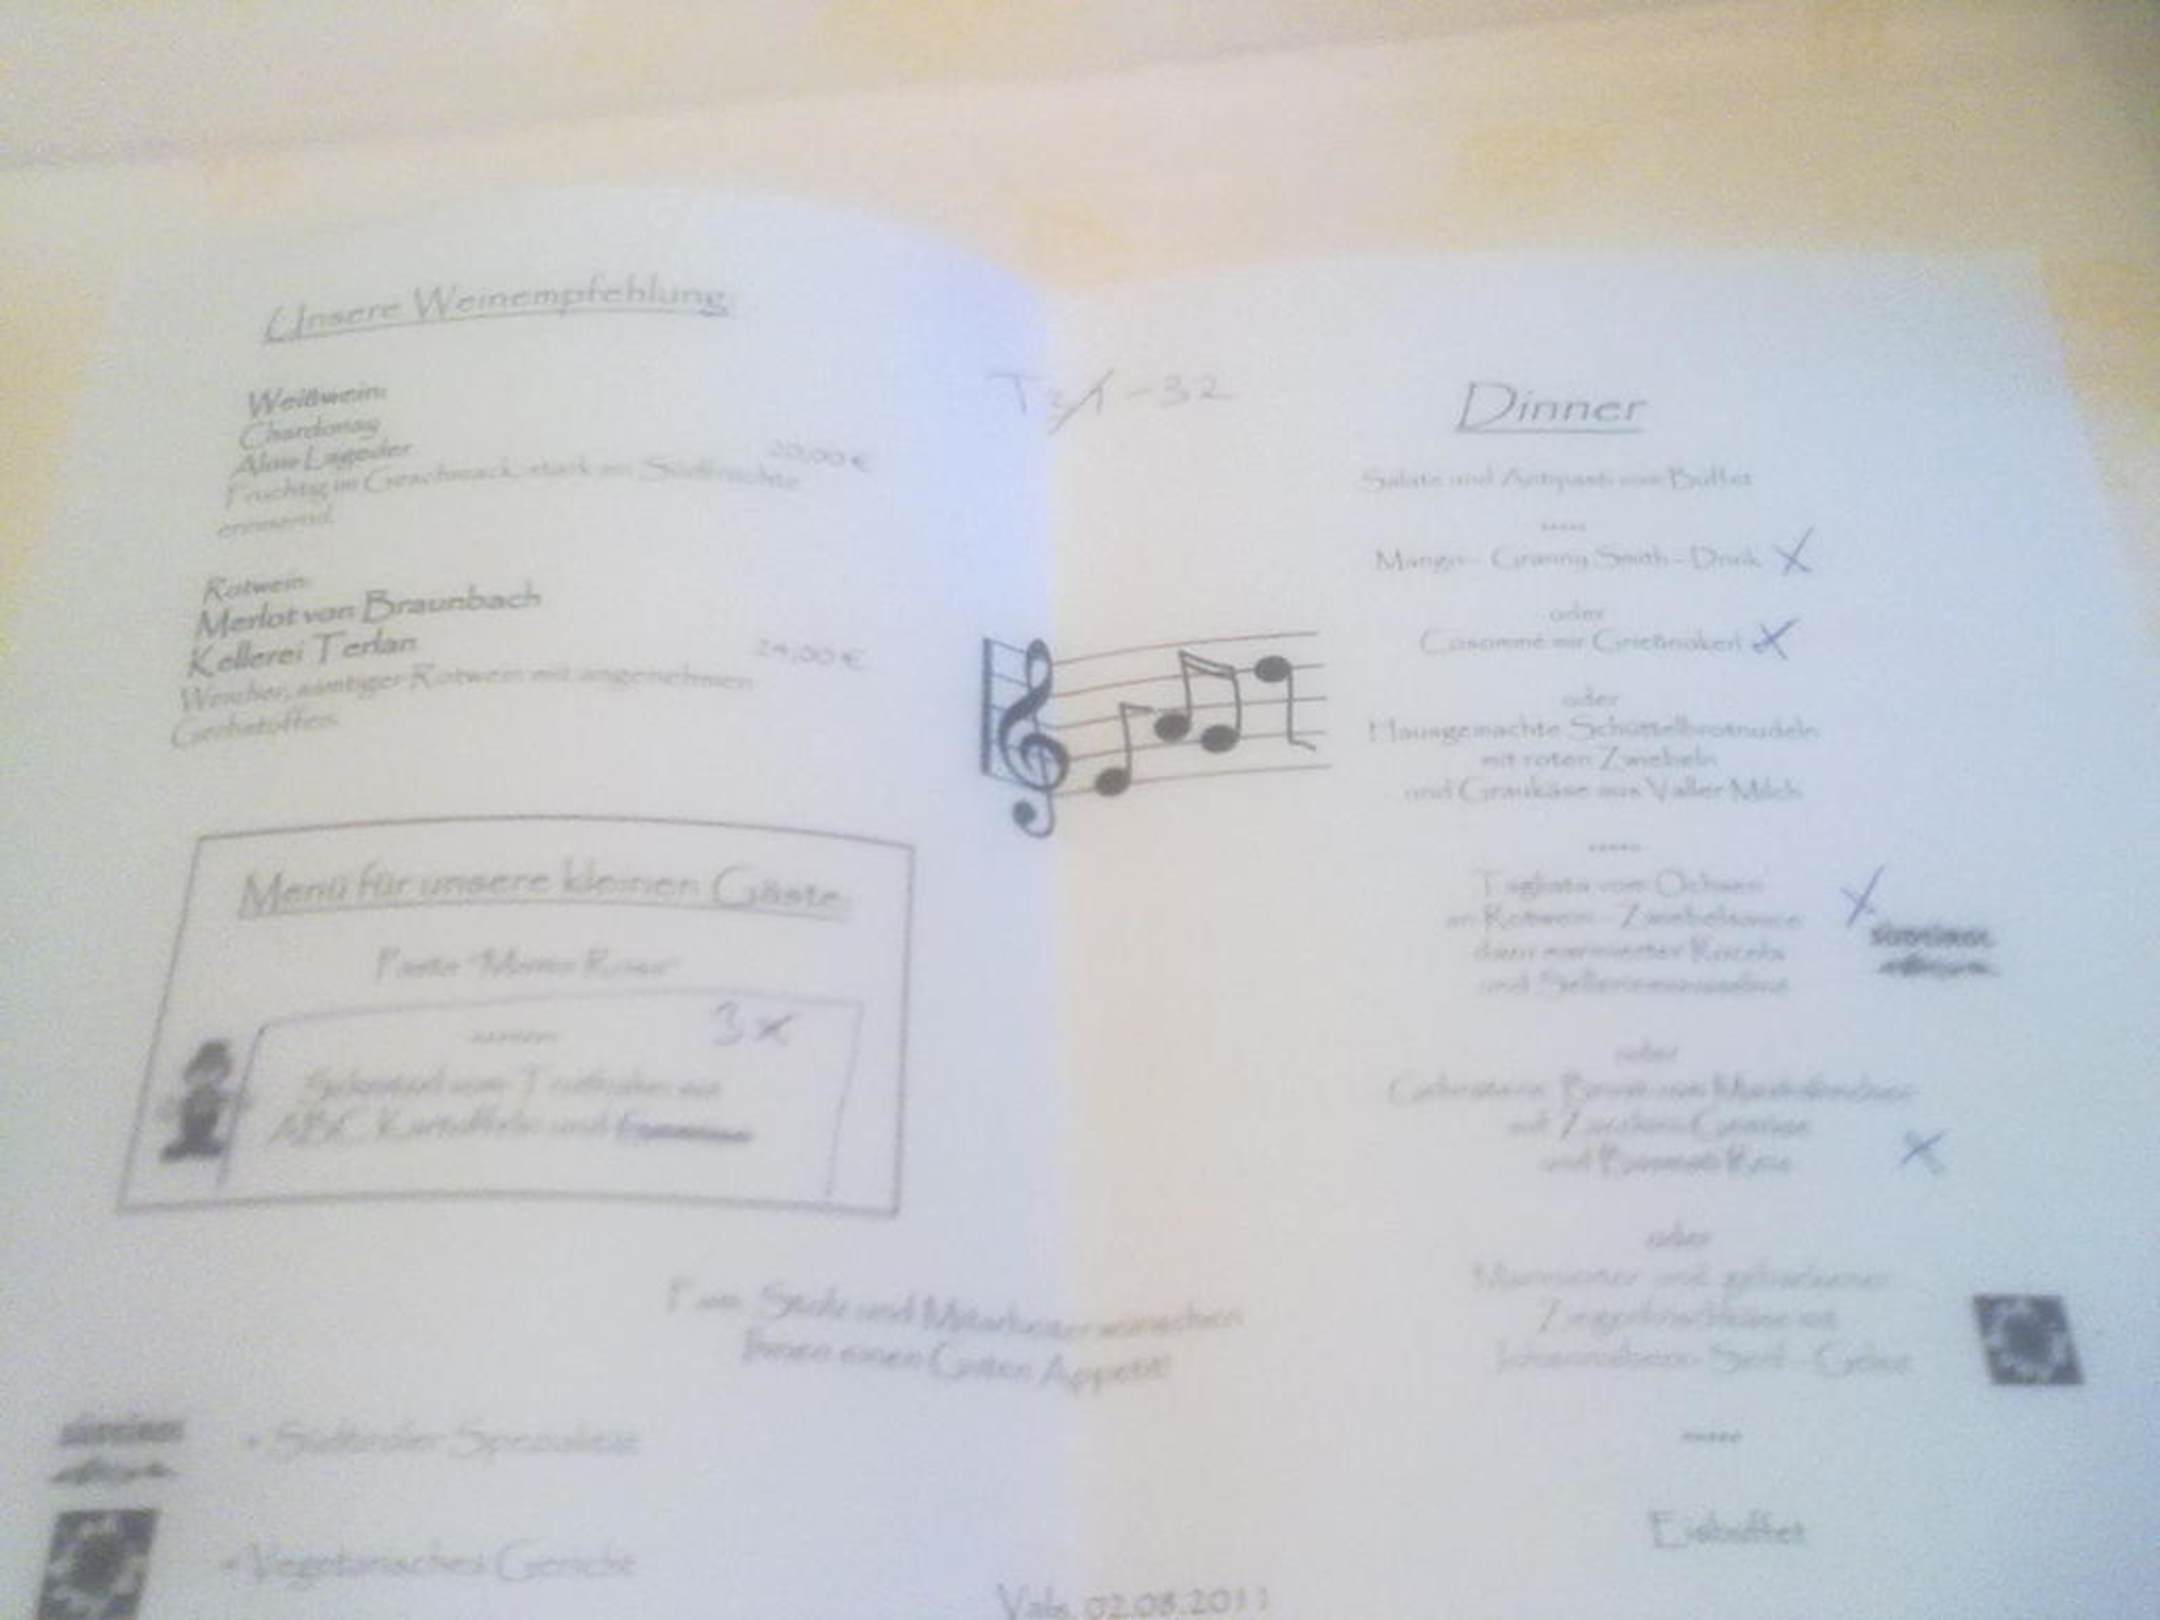 Unsere Weinempfehlung
Weißwein:
Chardonay
Alois Lageder
20,00 €
Fruchtig im Geschmack, stark an Südfrüchte
erinnernd.
Rotwein:
Merlot von Braunbach
Kellerei Terlan
24,00 €
Weicher, samtiger Rotwein mit angenehmen
Gerbstoffen.
Menü für unsere kleinen Gäste
Pasta "Monte Rosa"
3x
ABC Kartoffeln und
Fam. und Mitarbeiter wünschen
Ihnen einen Guten Appetit!
= Südtiroler Spezialität
= Vegetarisches Gericht
T 31 - 32
Dinner
Salate und Antipasti vom Buffet
Mango - Granny Smith - Drink X
oder
Cosommé mit Grießnokerl X
oder
Hausgemachte Schüttelbrotnudeln
mit roten Zwiebeln
und Graukäse aus Valler Milch
Tagliata vom Ochsen X
an Rotwein - Zwiebelsauce
dazu marinierter Rucola
und Selleriemousseline
oder
Gebratene Brust vom
mit Zucchini Gemüse
und Basmati Reis X
oder
Eisbuffet
Vals, 02.08.2011